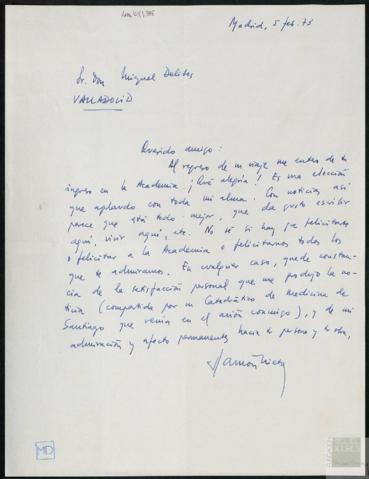 Madrid, 5 feb. 73
Sr. Don Miguel Delibes
VALLADOLID
Querido amigo:
Al regreso de un viaje me entero de tu
ingreso en la Academia. ¡Qué alegría! Es una elección
que aplaudo con toda mi alma. Con noticias así
parece que está todo mejor, que da gusto escribir
aquí, vivir aquí, etc. No sé si hay que felicitarte
o felicitar a la Academia o felicitarnos todos los
que te admiramos. En cualquier caso, quede constan-
cia de la satisfacción personal que me produjo la no-
ticia (compartida por un Catedrático de Medicina de
Santiago que venía en el avión conmigo), y de mi
admiración y afecto permanentes hacia tu persona y tu obra,
MD